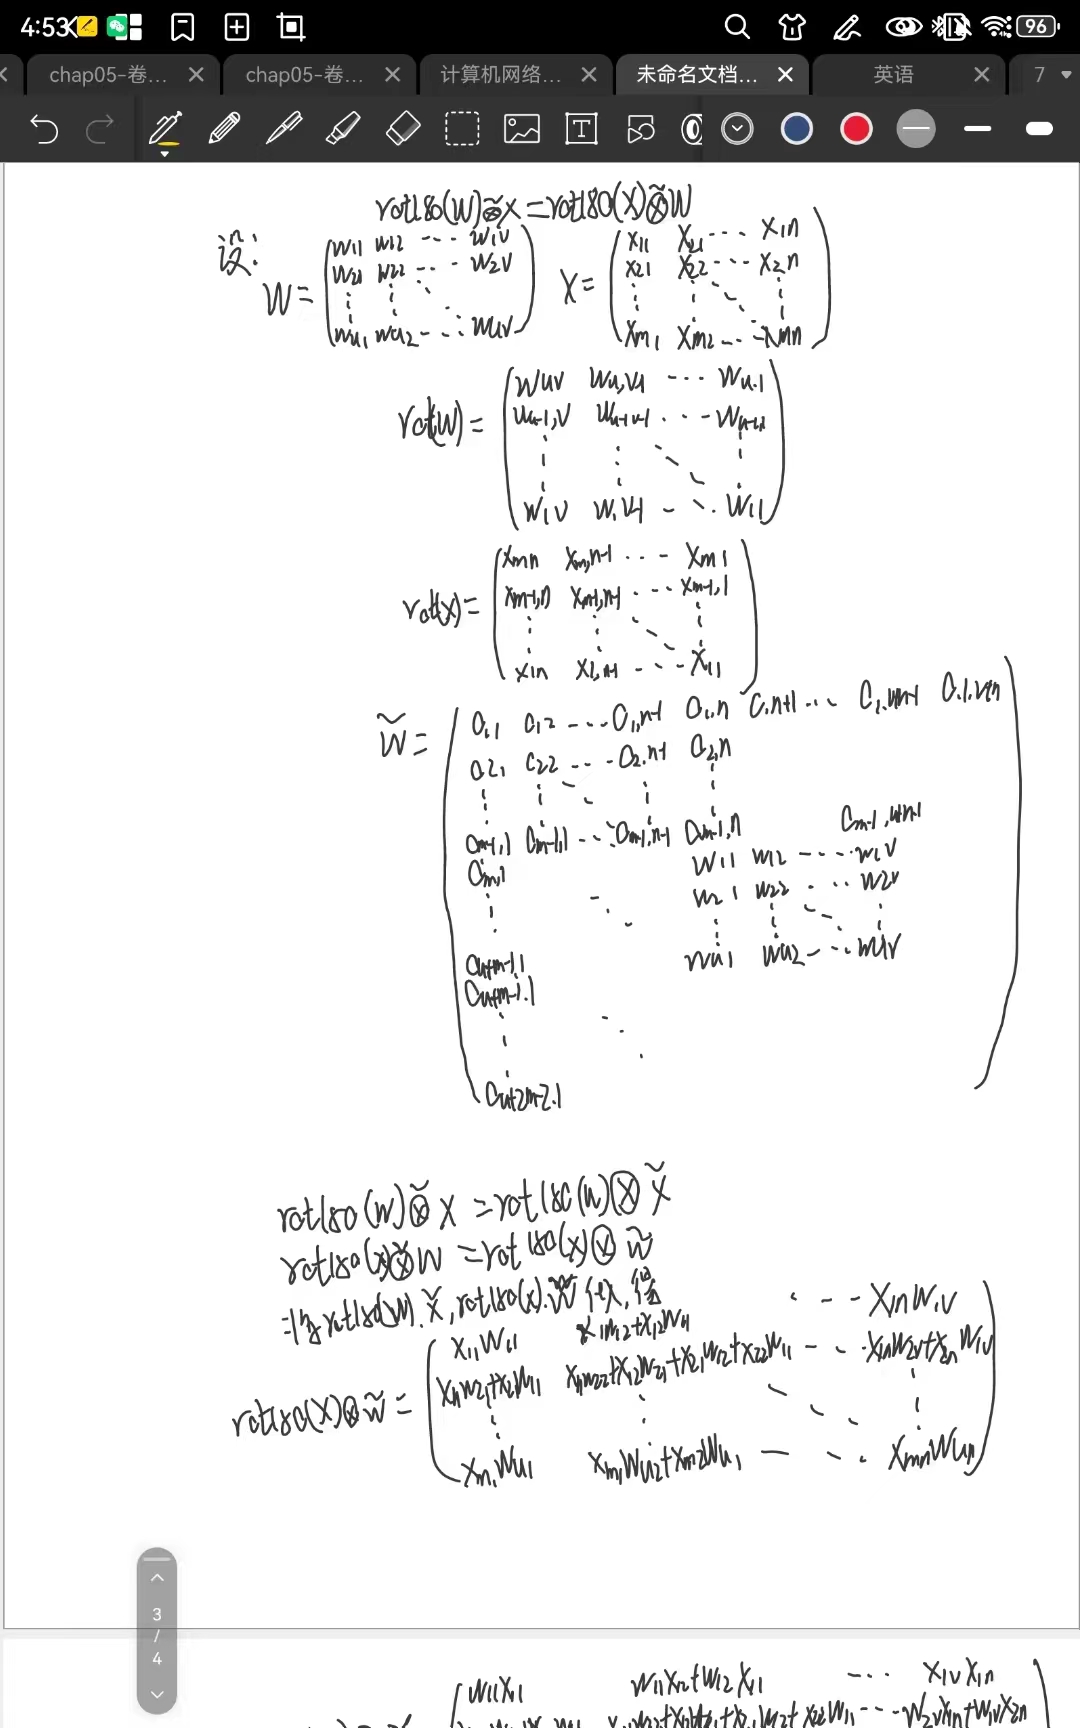 4:53 96
chap05-卷... chap05-卷... 计算机网络... 未命名文档... 英语 7
rot180(W)⊗̃X=rot180(X)⊗̃W
设:
W= X=
w11 w12 ... w1v x11 x21 ... x1n
w21 w22 ... w2v x21 x22 ... x2n
wu1 wu2 ... wuv xm1 xm2 ... xmn
rot(W)=
wuv wu,v-1 ... wu.1
wu-1,v wu-1,v-1 ...
w1v w1,v-1 ... w11
rot(x)=
xmn xm,n-1 ... xm1
xm-1,n xm-1,n-1 ... xm-1,1
x1n x1,n-1 ... x11
W̃=
0,1 0,2 ... 0,n-1 0,n 0,n+1 ...
021 022 ... 02,n-1 02,n
0m-1,1 0m-1,1 ... 0m-1,n-1 0m-1,n
w11 w12 ... w1v
0m,1
w21 w22 ... w2v
wu1 wu2 ... wuv
0u+m-1,1
0u+m-1,1
0u+2m-2,1
rot180(W)⊗̃X=rot180(W)⊗X̃
rot180(x)⊗̃W=rot180(x)⊗W̃
rot180(W).X̃,rot180(x).W̃代入,得
rot180(X)⊗W̃=
x11w11 x11w12+x12w11 ... x1nw1v
x11w21+x21w11 x11w22+x12w21+x21w12+x22w11 ... x1nw2v+x2nw1v
xm1wu1 xm1wu2+xm2wu1 ...
3
/
4
w11x11 w11x12+w12x11 ... x1vx1n